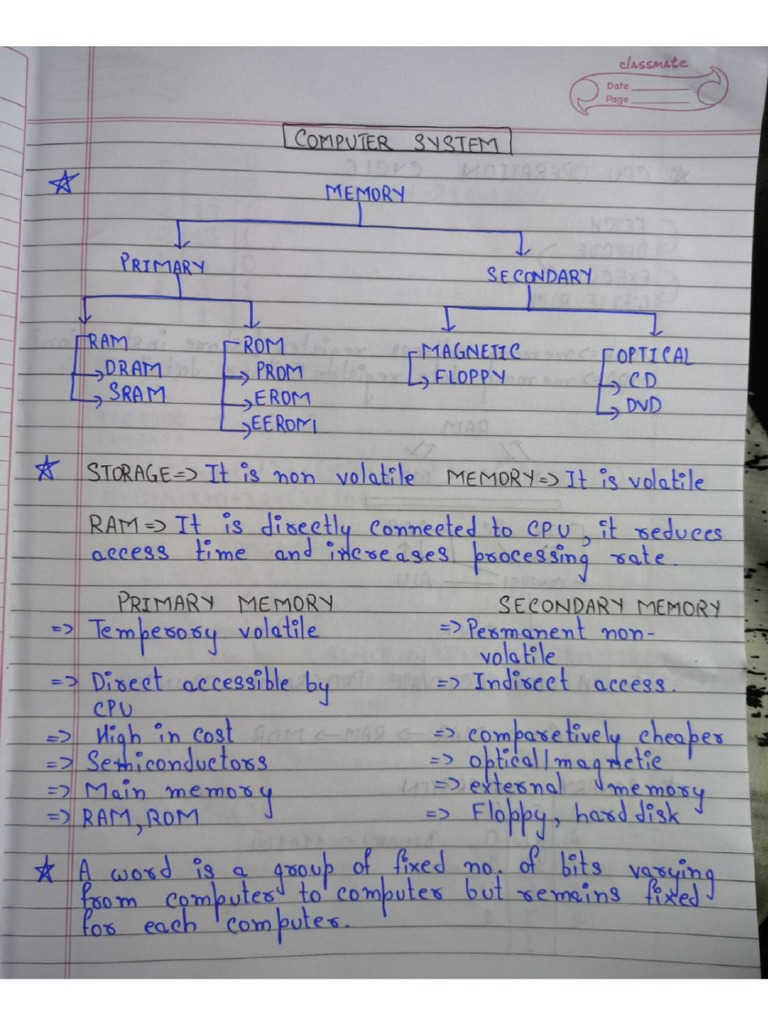 classmate
Date
Page
COMPUTER SYSTEM
MEMORY
PRIMARY
SECONDARY
RAM
DRAM
SRAM
ROM
PROM
EROM
EEROM
MAGNETIC
FLOPPY
OPTICAL
CD
DVD
STORAGE => It is non volatile MEMORY => It is volatile
RAM => It is directly connected to CPU, it reduces
access time and increases processing rate.
PRIMARY MEMORY
=> Temperory volatile
=> Direct accessible by
CPU
=> High in cost
=> Semiconductors
=> Main memory
=> RAM, ROM
SECONDARY MEMORY
=> Permanent non-
volatile
=> Indirect access.
=> comparetively cheaper
=> optical/magnetic
=> external memory
=> Floppy, hard disk
A word is a group of fixed no. of bits varying
from computer to computer but remains fixed
for each computer.